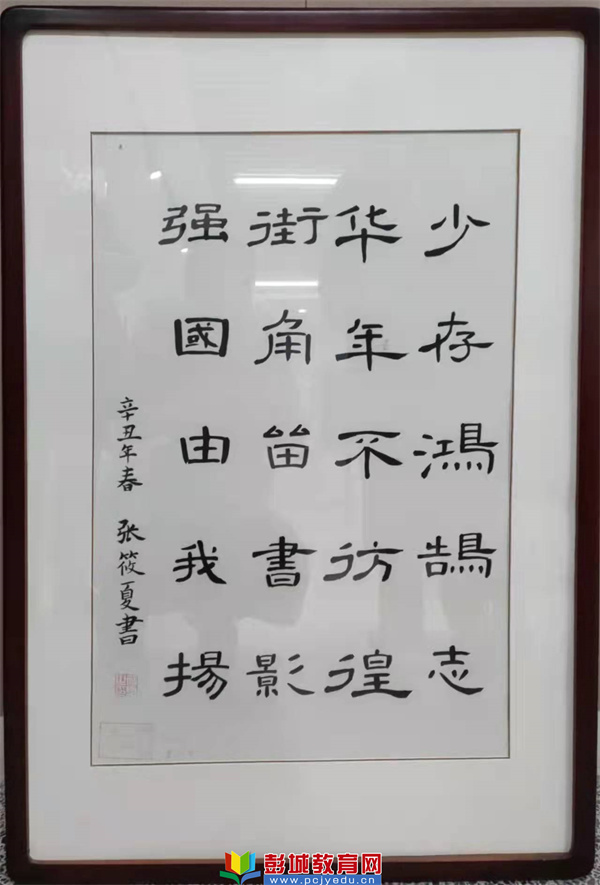 少存鴻鵠志
华年不彷徨
街角畄書影
强國由我揚
辛丑年春 张筱夏書
彭城教育网
www.pcjyedu.cn